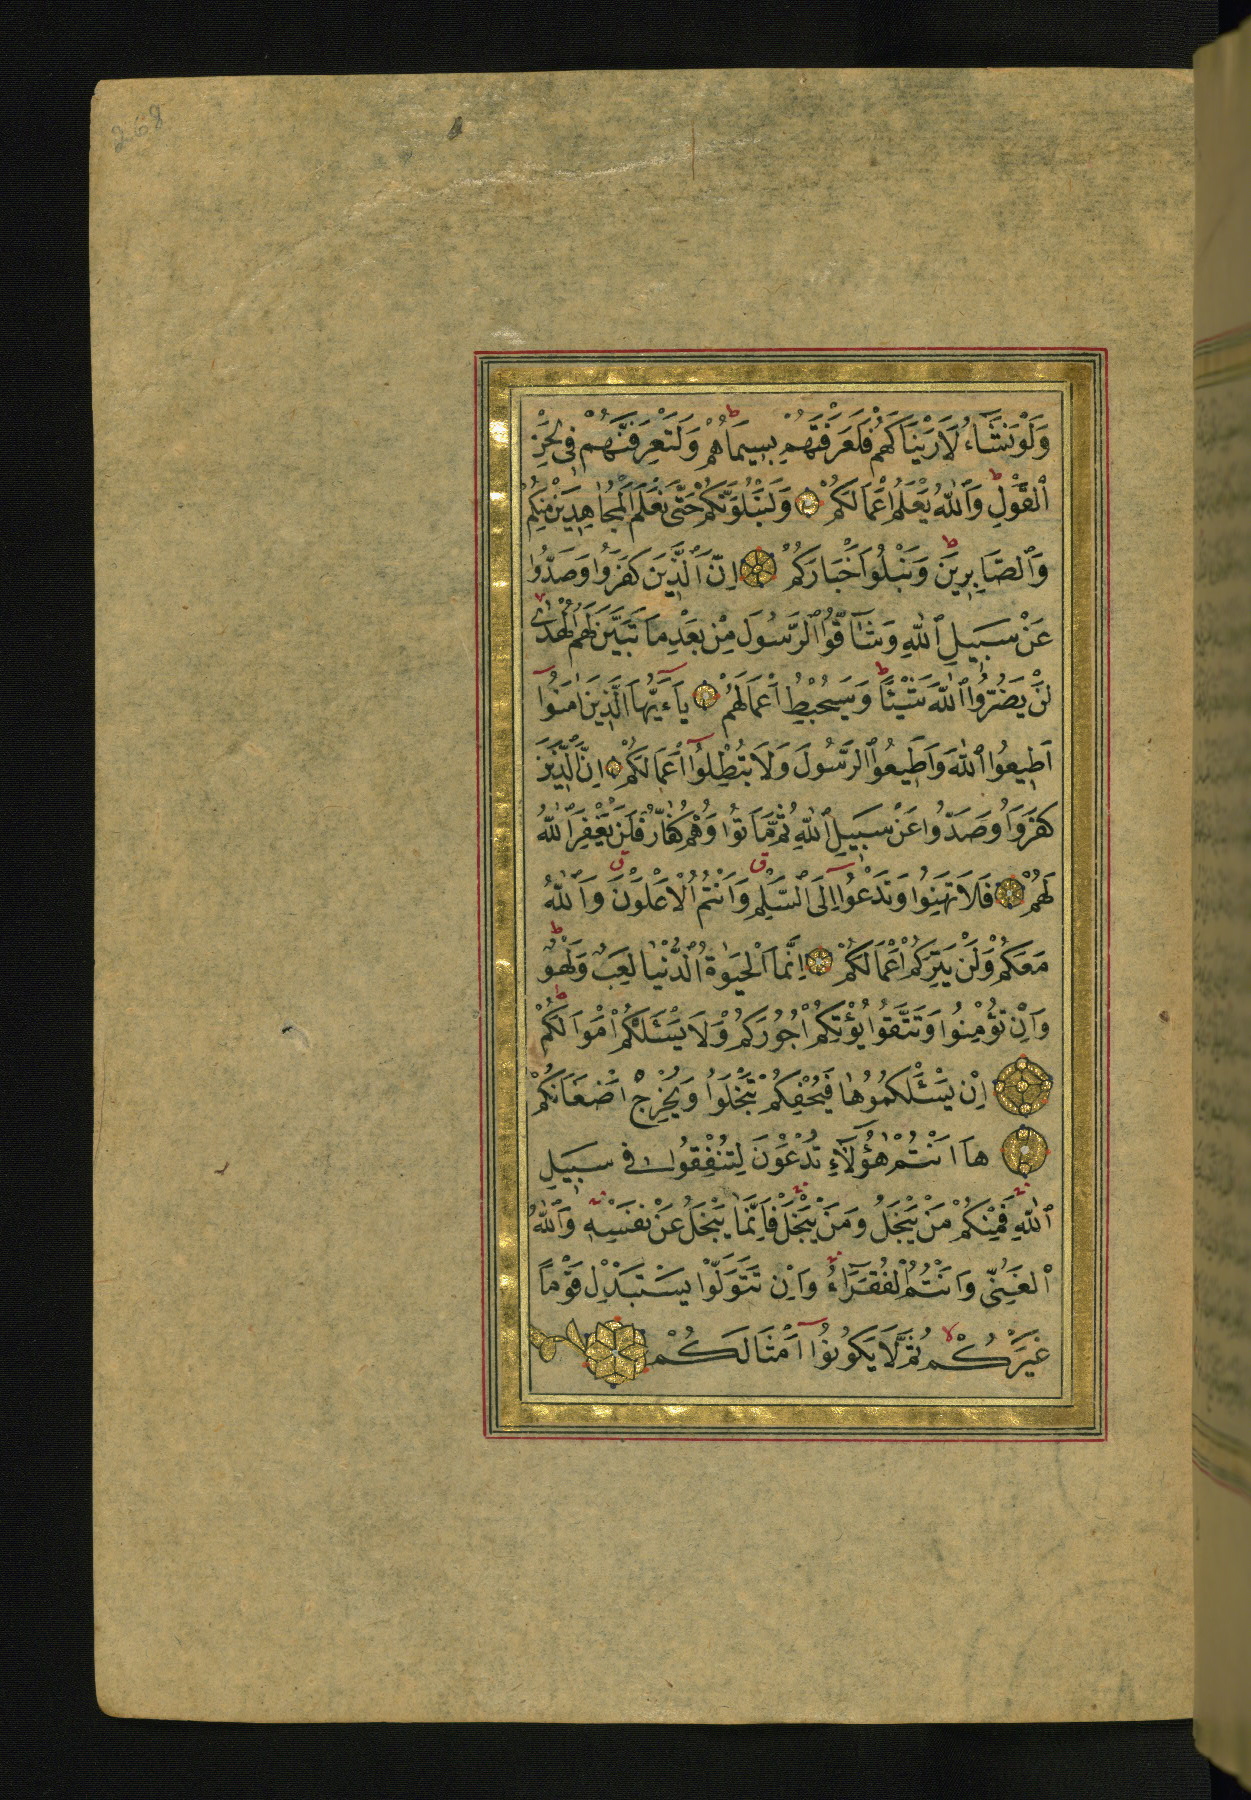 268
وَلَوْ نَشَاءُ لَاَرَيْنَاكَهُمْ فَلَعَرَفْتَهُمْ بِسِيمٰهُمْ ط وَلَتَعْرِفَنَّهُمْ فِى لَحْنِ
الْقَوْلِ ط وَاللّٰهُ يَعْلَمُ اَعْمَالَكُمْ وَلَنَبْلُوَنَّكُمْ حَتّٰى نَعْلَمَ الْمُجَاهِدِينَ مِنْكُمْ
وَالصَّابِرِينَ ط وَنَبْلُوَا اَخْبَارَكُمْ اِنَّ الَّذِينَ كَفَرُوا وَصَدُّوا
عَنْ سَبِيلِ اللّٰهِ وَشَاقُّوا الرَّسُولَ مِنْ بَعْدِ مَا تَبَيَّنَ لَهُمُ الْهُدٰى
لَنْ يَضُرُّوا اللّٰهَ شَيْئًا ط وَسَيُحْبِطُ اَعْمَالَهُمْ يَاءَيُّهَا الَّذِينَ اٰمَنُوا
اَطِيعُوا اللّٰهَ وَاَطِيعُوا الرَّسُولَ وَلَا تُبْطِلُوا اَعْمَالَكُمْ اِنَّ الَّذِينَ
كَفَرُوا وَصَدُّوا عَنْ سَبِيلِ اللّٰهِ ثُمَّ مَاتُوا وَهُمْ كُفَّارٌ فَلَنْ يَغْفِرَ اللّٰهُ
لَهُمْ فَلَا تَهِنُوا وَتَدْعُوا اِلَى السَّلْمِ ق وَاَنْتُمُ الْاَعْلَوْنَ ق وَاللّٰهُ
مَعَكُمْ وَلَنْ يَتِرَكُمْ اَعْمَالَكُمْ اِنَّمَا الْحَيٰوةُ الدُّنْيَا لَعِبٌ وَلَهْوٌ ط
وَاِنْ تُؤْمِنُوا وَتَتَّقُوا يُؤْتِكُمْ اُجُورَكُمْ وَلَا يَسْئَلْكُمْ اَمْوَالَكُمْ ط
اِنْ يَسْئَلْكُمُوهَا فَيُحْفِكُمْ تَبْخَلُوا وَيُخْرِجْ اَضْغَانَكُمْ
هَا اَنْتُمْ هٰؤُلَاءِ تُدْعَوْنَ لِتُنْفِقُوا فِى سَبِيلِ
اللّٰهِ فَمِنْكُمْ مَنْ يَبْخَلُ وَمَنْ يَبْخَلْ فَاِنَّمَا يَبْخَلُ عَنْ نَفْسِهِ وَاللّٰهُ
الْغَنِىُّ وَاَنْتُمُ الْفُقَرَاءُ وَاِنْ تَتَوَلَّوْا يَسْتَبْدِلْ قَوْمًا
غَيْرَكُمْ لا ثُمَّ لَا يَكُونُوا اَمْثَالَكُمْ